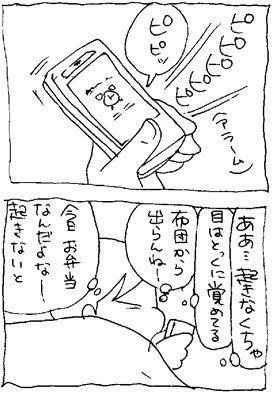 ピピピピピ
(アラーム)
ピピッ
ああ…起きなくちゃ
目はとっくに覚めてる
布団から
出らんねー
今日お弁当
なんだよなー
起きないと